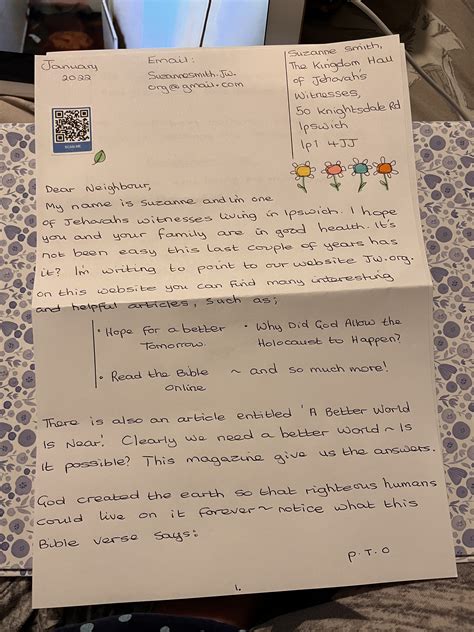 January
2022
Email:
Suzannesmith.Jw.
org@gmail.com
Suzanne Smith,
The Kingdom Hall
of Jehovah's
Witnesses,
50 Knightsdale Rd
Ipswich
Ip1 4JJ
SCAN ME
Dear Neighbour,
My name is Suzanne and Im one
of Jehovahs witnesses living in Ipswich. I hope
you and your family are in good health. It's
not been easy this last couple of years has
it? Im writing to point to our website Jw.org.
on this website you can find many interesting
and helpful articles, such as;
• Hope for a better
Tomorrow.
• Why Did God Allow the
Holocaust to Happen?
• Read the Bible
Online
~ and so much more!
There is also an article entitled 'A Better World
Is Near'. Clearly we need a better World ~ Is
it possible? This magazine give us the answers.
God created the earth so that righteous humans
could live on it forever ~ notice what this
Bible verse says:
P.T.O
1.